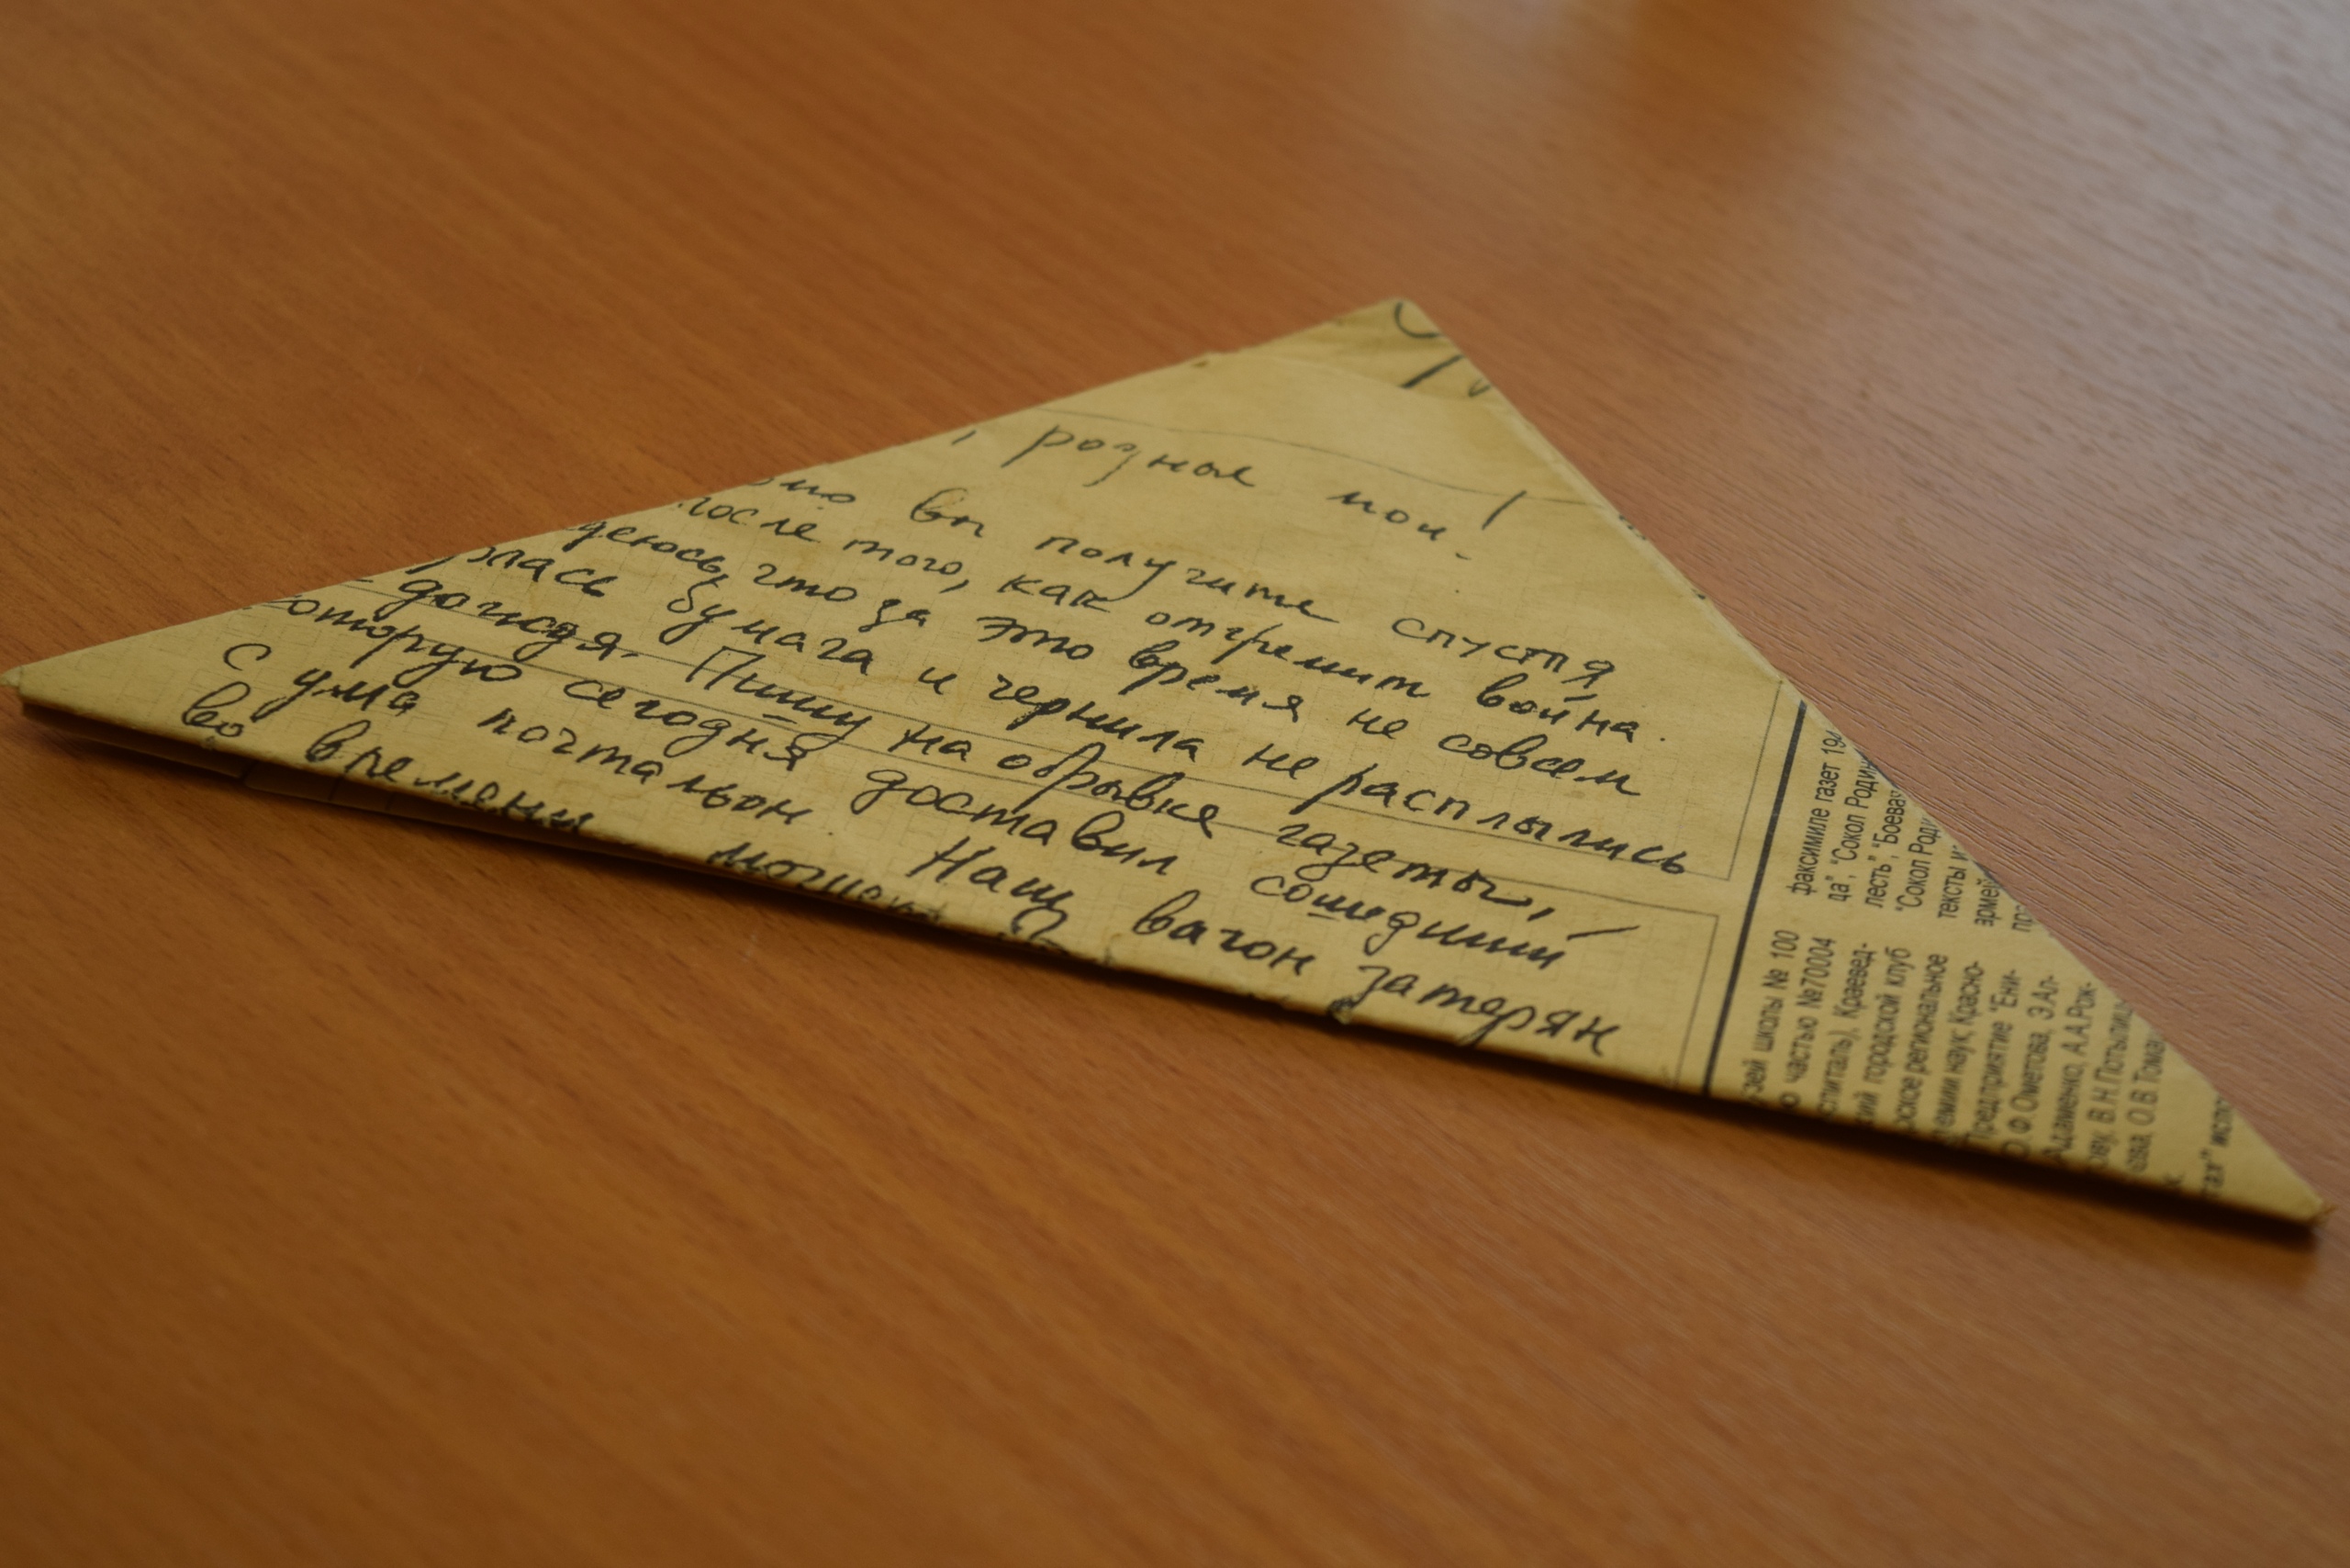 , родные мои!
вы получите спустя
после того, как отгремит война.
деюсь, что за это время не совсем
лась бумага и чернила не расплылись
дождя. Пишу на обрывке газеты,
которую сегодня доставил сошедший
с ума почтальон. Наш вагон затерян
во времени
факсимиле газет 194
да", "Сокол Родин
лесть", "Боевая
"Сокол Роди
тексты и
армей
пр
ей школы № 100
о частью №70004
спиталь), Краевед-
ий городской клуб
рское региональное
емии наук, Красно-
Предприятие "Ени-
О.Ф.Ометова, Э.Ал-
Адаменко, А.А.Рок-
ову, В.Н.Потылиц
ева, О.В.Тома
тах" испо